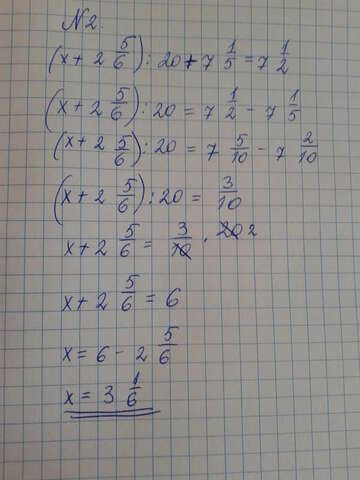 №2.
(x + 2 5/6) : 20 + 7 1/5 = 7 1/2
(x + 2 5/6) : 20 = 7 1/2 - 7 1/5
(x + 2 5/6) : 20 = 7 5/10 - 7 2/10
(x + 2 5/6) : 20 = 3/10
x + 2 5/6 = 3/10 · 20 2
x + 2 5/6 = 6
x = 6 - 2 5/6
x = 3 1/6